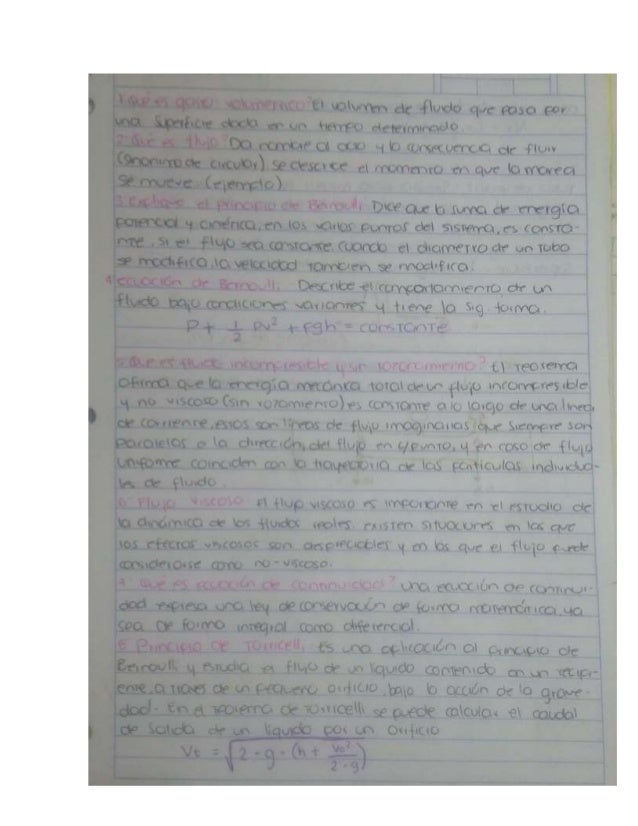 1. Que es gasto volumetrico? El volumen de fluido que pasa por
una superficie dada en un tiempo determinado.
2. Que es flujo? Da nombre al acto y la consecuencia de fluir
(sinonimo de circular), se describe el momento en que la marea
se mueve (ejemplo).
3. Explique el principio de Bernoulli Dice que la suma de energía
potencial y cinética, en los varios puntos del sistema, es consta-
nte, si el flujo sea constante. Cuando el diametro de un tubo
se modifica, la velocidad tambien se modifica.
4. ecuación de Bernoulli. Describe el comportamiento de un
fluido bajo condiciones variantes y tiene la sig. forma.
P + 1/2 ρv² + ρgh = constante
5. Que es fluido incompresible y sin rozamiento? El teorema
afirma que la energía mecánica total de un flujo incompresible
y no viscoso (sin rozamiento) es constante a lo largo de una linea
de corriente, estos son líneas de flujo imaginarias que siempre son
paralelas a la dirección del flujo en c/punto, y en caso de flujo
uniforme coinciden con la trayectoria de las particulas individua-
les de fluido.
6. Flujo viscoso El flujo viscoso es importante en el estudio de
la dinámica de los fluidos existen situaciones en las que
los efectos viscosos son despreciables y en los que el flujo puede
considerarse como no-viscoso.
7. Que es ecuación de continuidad? una ecuación de continui-
dad expresa una ley de conservación de forma matemática, ya
sea de forma integral como diferencial.
8. Principio de Torricelli Es una aplicación al principio de
Bernoulli y estudia el flujo de un liquido contenido en un recipi-
ente, a traves de un pequeno orificio, bajo la acción de la grave-
dad. En el teorema de torricelli se puede calcular el caudal
de salida de un liquido por un orificio
Vt = √2 · g · (h + Vo²/2·g)